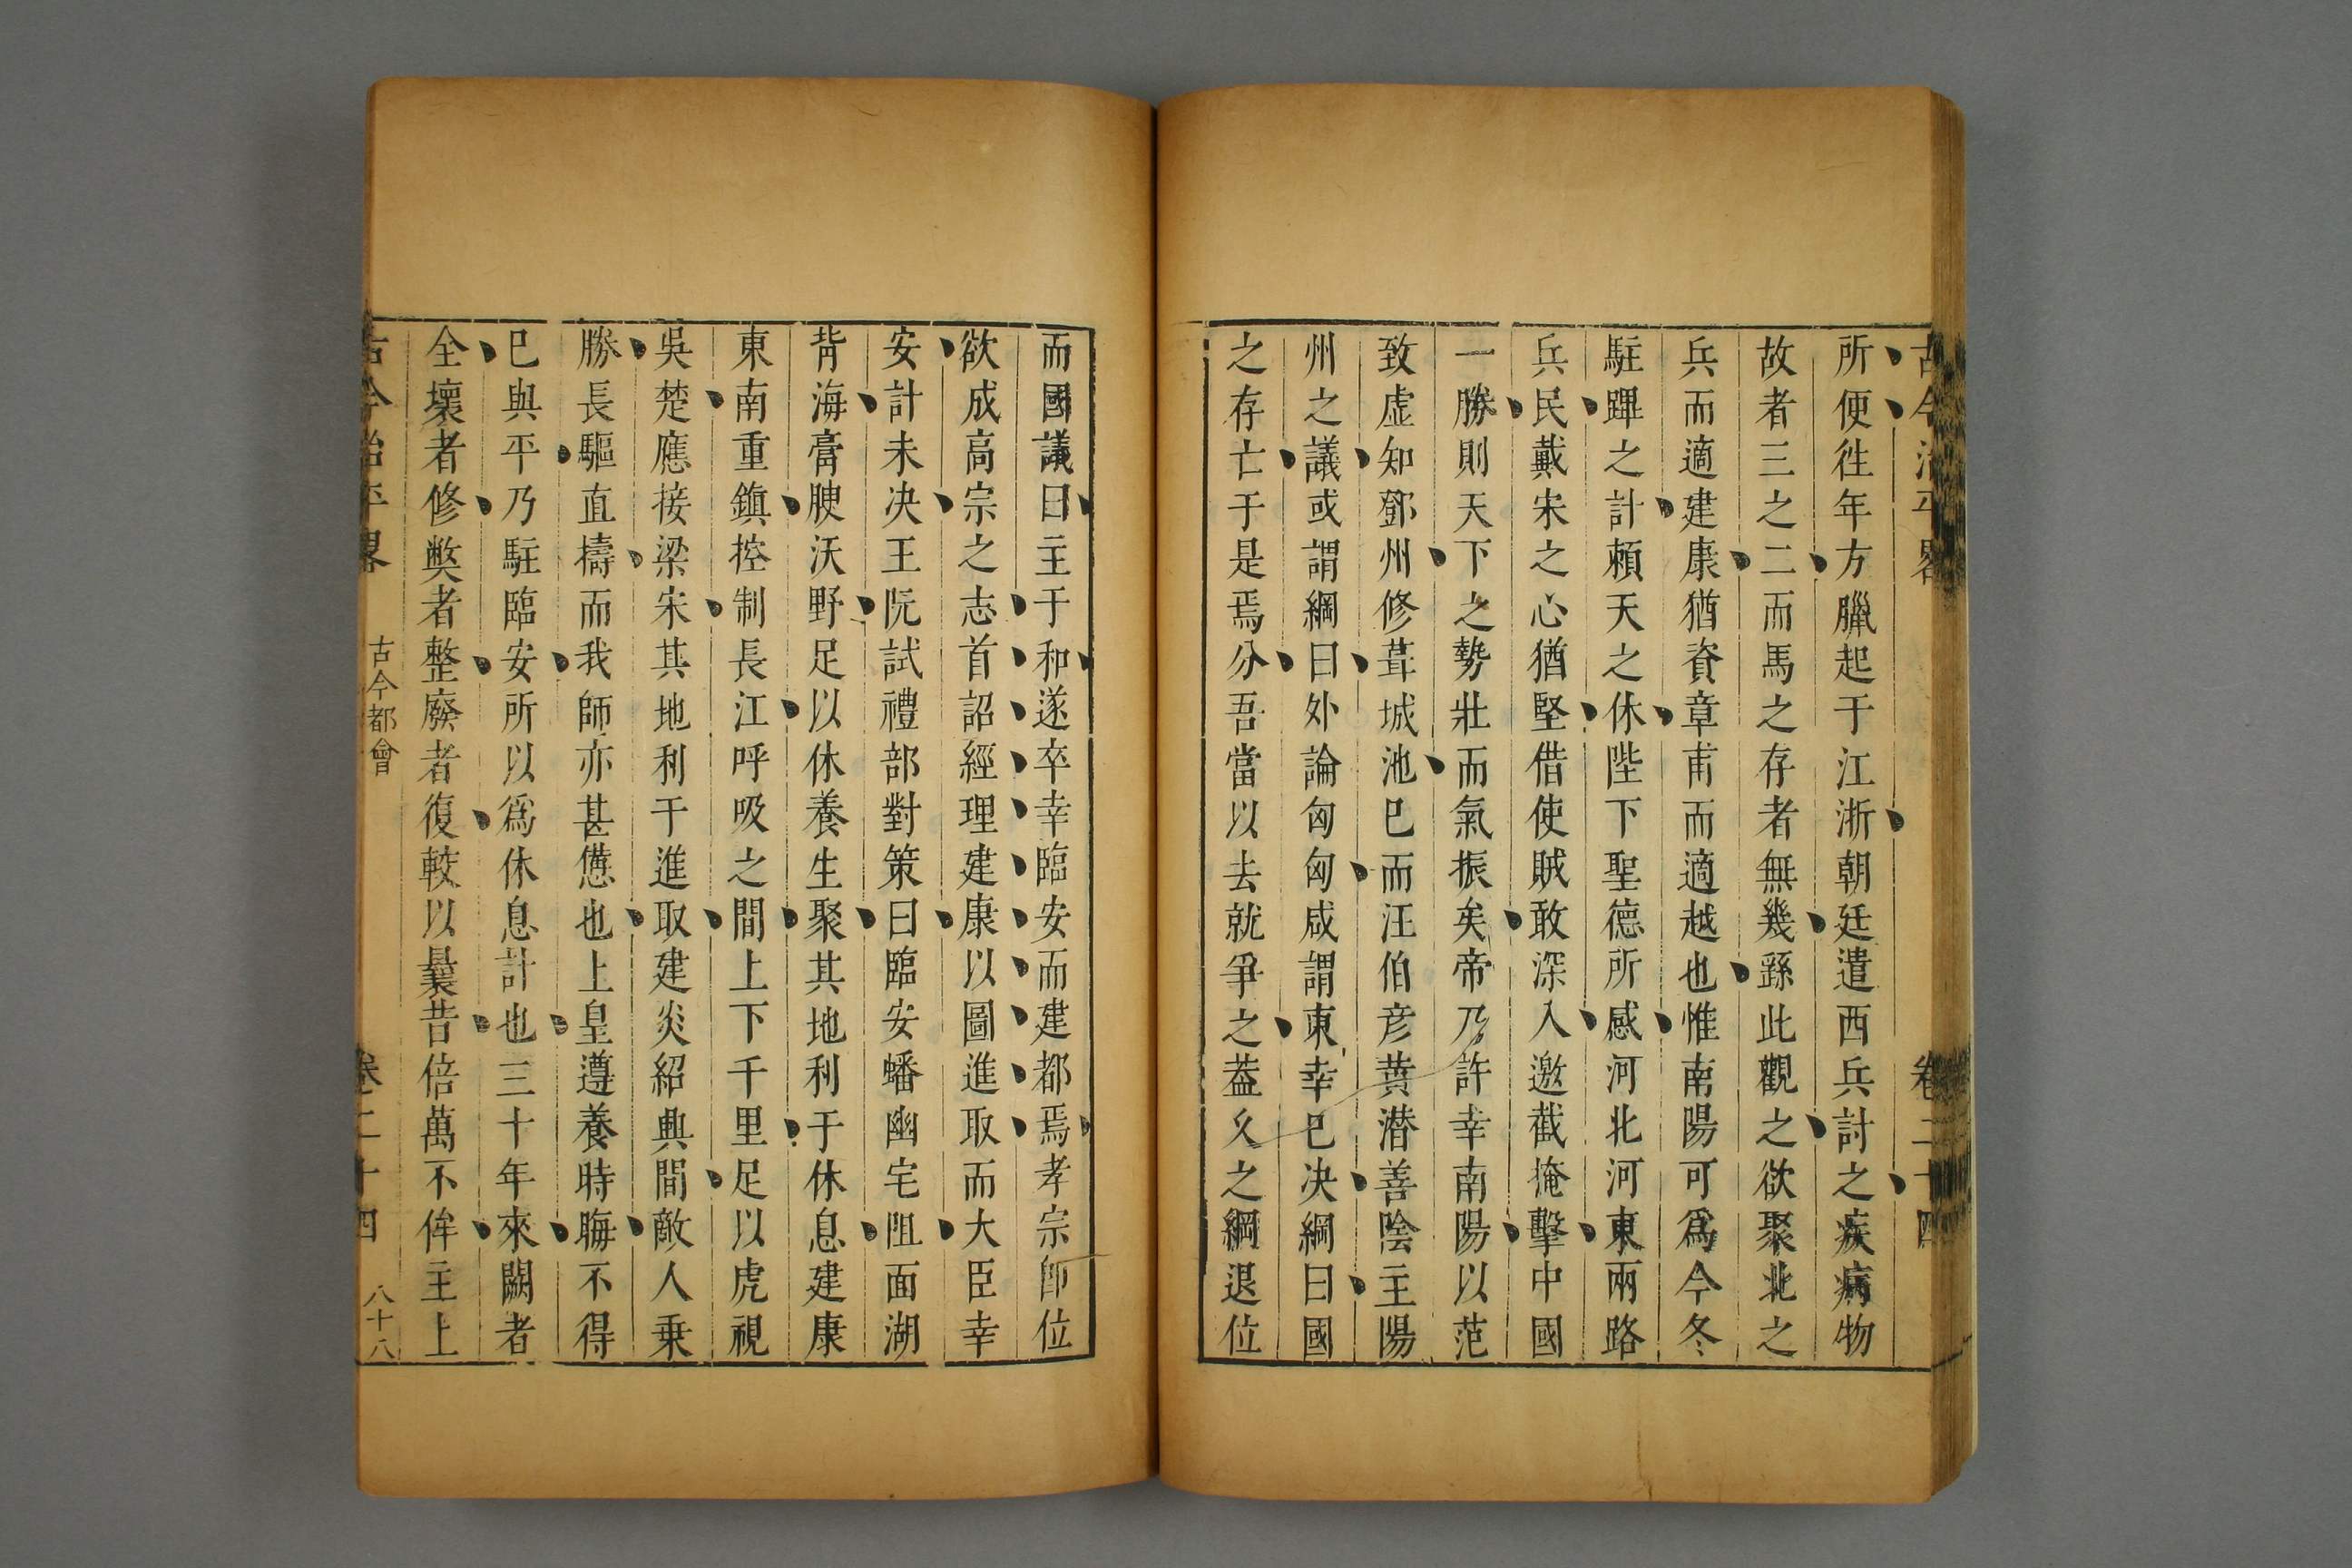 古今治平畧
卷二十四
所便徃年方臘起于江浙朝廷遣西兵討之疾病物
故者三之二而馬之存者無幾繇此觀之欲聚北之
兵而適建康猶資章甫而適越也惟南陽可爲今冬
駐蹕之計頼天之休陛下聖德所感河北河東兩路
兵民戴宋之心猶堅借使賊敢深入邀截掩擊中國
一勝則天下之勢壯而氣振矣帝乃許幸南陽以范
致虚知鄧州修葺城池巳而汪伯彦黄潜善陰主陽
州之議或謂綱曰外論匈匈咸謂東幸巳决綱曰國
之存亡于是焉分吾當以去就爭之葢乆之綱退位
而國議日主于和遂卒幸臨安而建都焉孝宗卽位
欲成高宗之志首詔經理建康以圖進取而大臣幸
安計未决王阮試禮部對策曰臨安蟠幽宅阻面湖
背海膏腴沃野足以休養生聚其地利于休息建康
東南重鎮控制長江呼吸之間上下千里足以虎視
吳楚應接梁宋其地利于進取建炎紹興間敵人乗
勝長驅直擣而我師亦甚憊也上皇遵養時晦不得
巳與平乃駐臨安所以爲休息計也三十年來闕者
全壞者修獘者整廢者復較以曩昔倍萬不侔主上
古今治平畧
古今都會
卷二十四
八十八